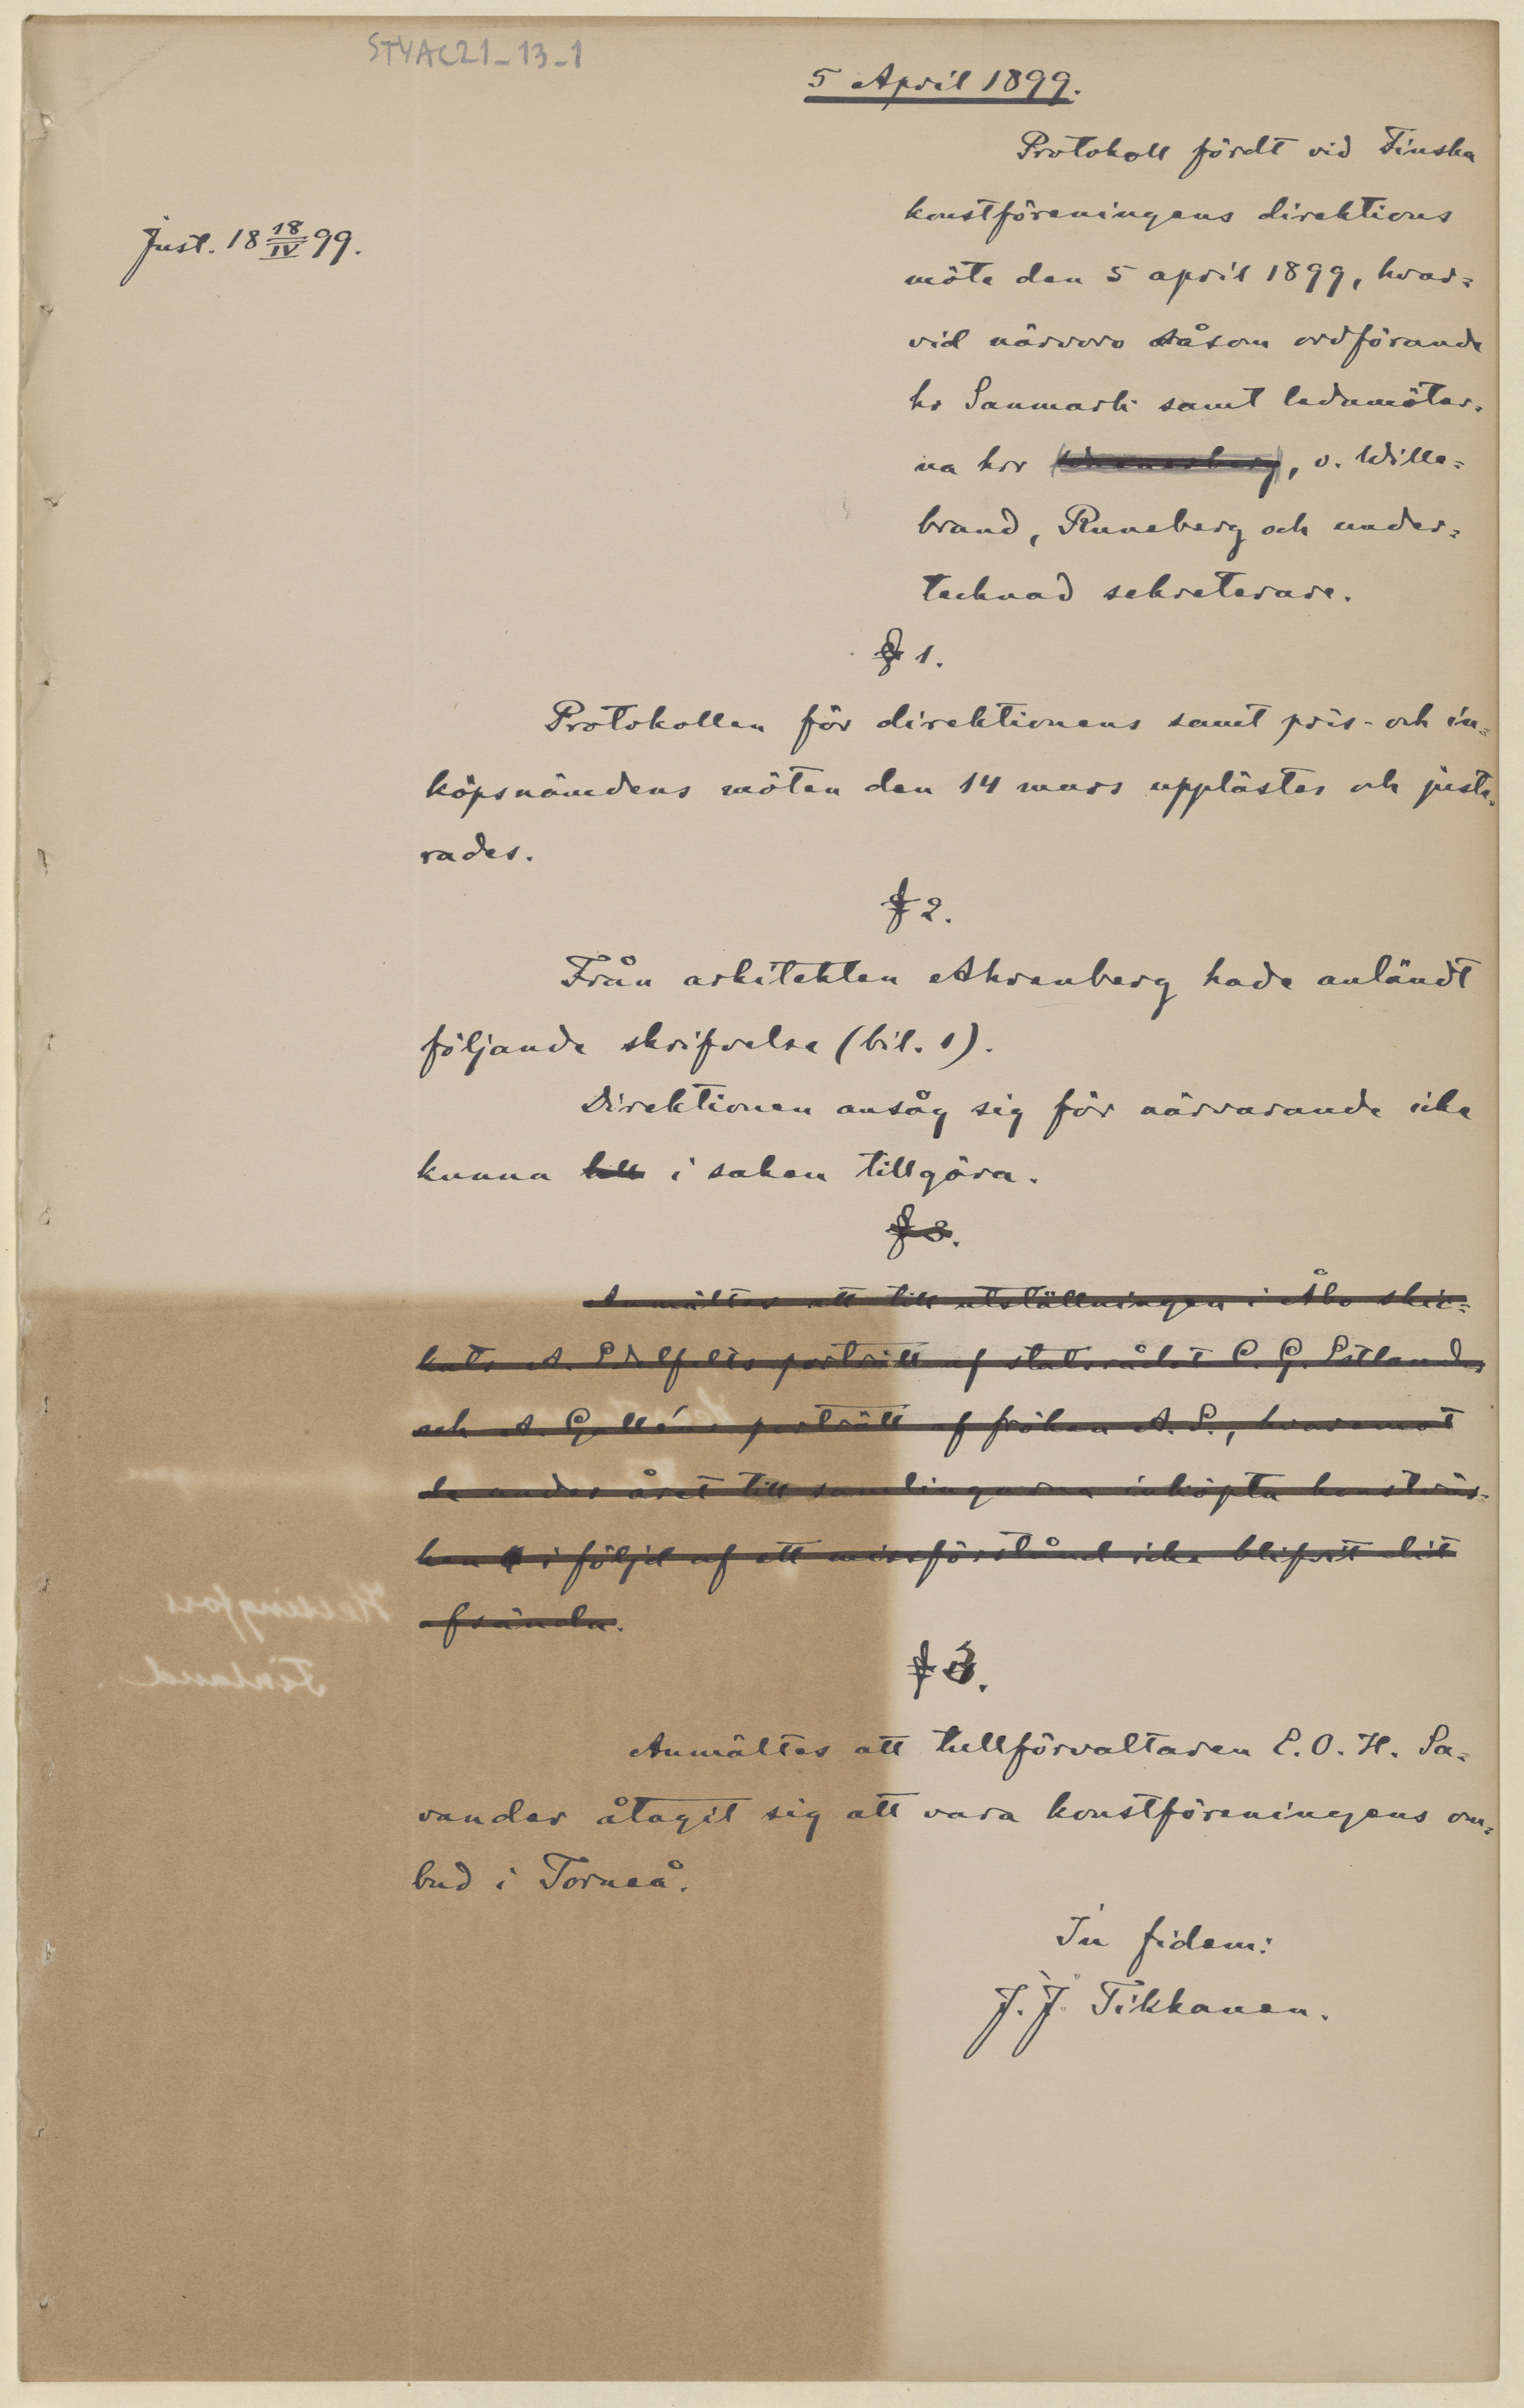 STYAC21-13-1
5 April 1899.
Just. 18 18/IV 99.
Protokoll fördt vid Finska
konstföreningens direktions
möte den 5 april 1899, hvar=
vid närvoro såsom ordförande
hr Sanmark samt ledamöter=
na hrr , v. Wille=
brand, Runeberg och under=
tecknad sekreterare.
§ 1.
Protokollen för direktionens samt pris- och in=
köpsnämdens möten den 14 mars upplästes och juste=
rades.
§ 2.
Från arkitekten Ahrenberg hade anländt
följande skrifvelse (bil. 1).
Direktionen ansåg sig för närvarande icke
kunna till i saken tillgöra.
§ 3.
Anmältes att till utställningen i Åbo skic=
kats A. Edelfelts porträtt af statsrådet C. G. Estlander
och A. Galléns porträtt af fröken A. S., hvaremot
de under året till samlingarna inköpta konstvär=
ken i följd af ett missförstånd icke blifvit dit
afsända.
§ 3.
Anmältes att tullförvaltaren E. O. H. Sa=
vander åtagit sig att vara konstföreningens om=
bud i Torneå.
In fidem:
J. J. Tikkanen.
Helsingfors
Finland